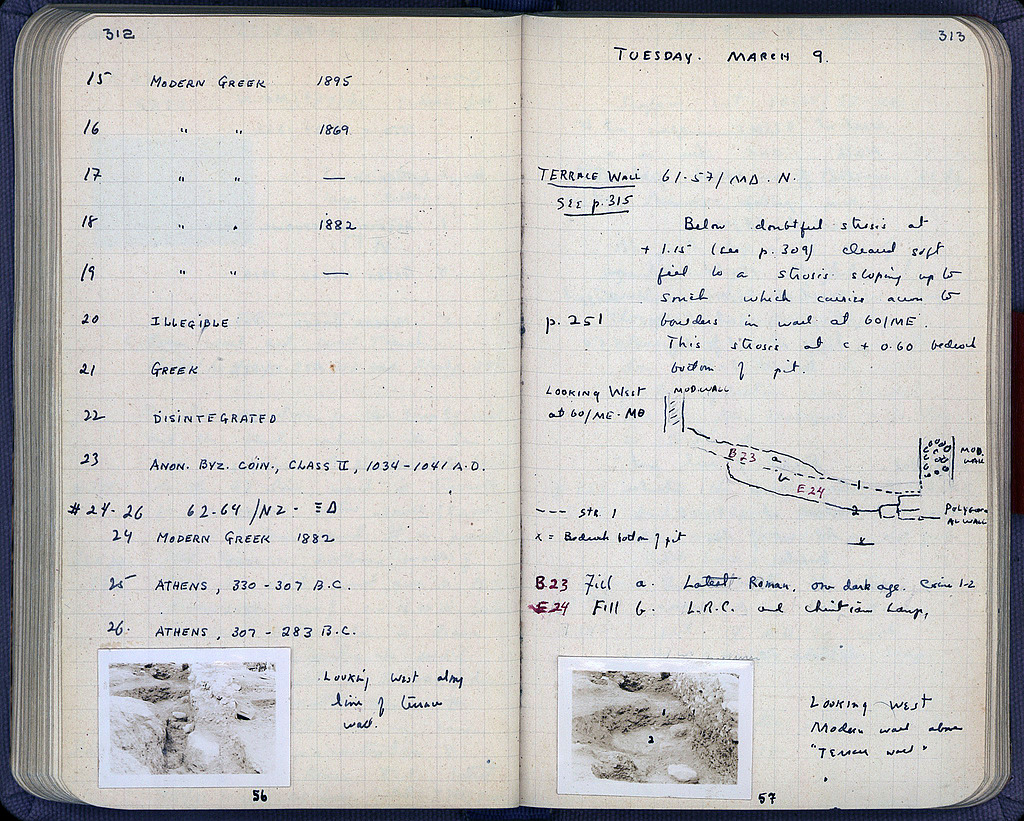 312
15 MODERN GREEK 1895
16 " " 1869
17 " " —
18 " " 1882
19 " " —
20 ILLEGIBLE
21 GREEK
22 DISINTEGRATED
23 ANON. BYZ. COIN, CLASS II, 1034-1041 A.D.
# 24-26 62-64 /NZ - ΞΔ
24 MODERN GREEK 1882
25 ATHENS, 330-307 B.C.
26. ATHENS, 307-283 B.C.
Looking west along
line of terrace
wall.
56
313
TUESDAY. MARCH 9.
TERRACE WALL 61-57/MΔ. N.
SEE p. 315
Below doubtful strosis at
+ 1.15 (see p. 309) cleared soft
fill to a strosis sloping up to
south which carries across to
p. 251 boulders in wall at 60/ME.
This strosis at c + 0.60 bedrock
bottom of pit.
LOOKING WEST
at 60/ME-MΘ
MOD. WALL
B23 a
b
E24
1
2
x
MOD. WALL
POLYGONAL WALL
--- STR. 1
x = Bedrock bottom of pit
B23 Fill a. Latest Roman, one dark age. Coins 1-2
E24 Fill b. L.R.C. and Christian lamp,
1
2
LOOKING WEST
Modern wall above
"Terrace wall"
57